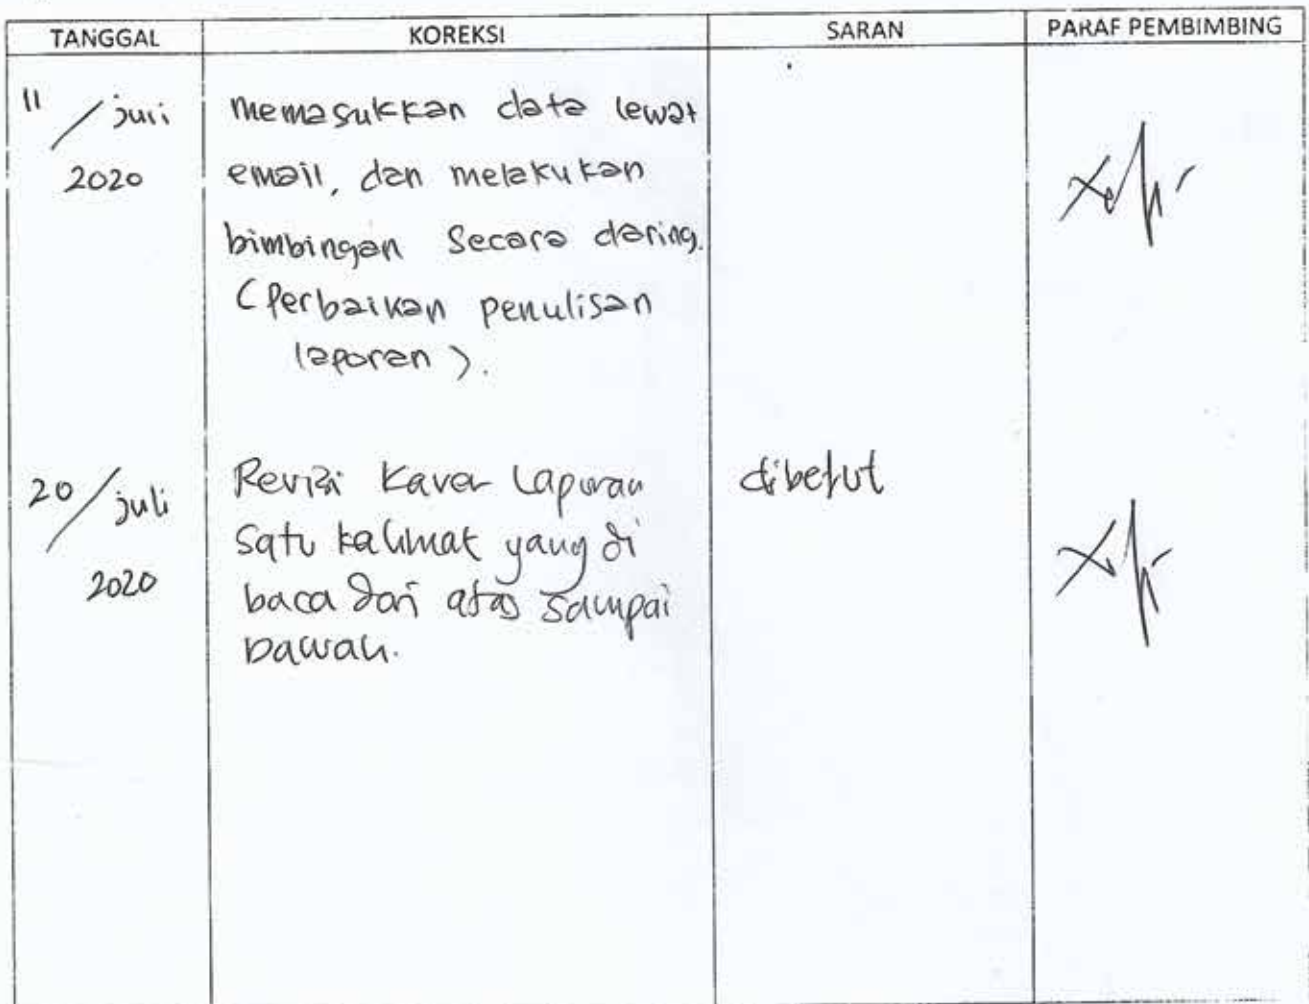 TANGGAL KOREKSI SARAN PARAF PEMBIMBING
11 / juli memasukkan data lewat
2020 email, dan melakukan
bimbingan Secara daring.
(Perbaikan penulisan
laporan).
20 / juli Revisi Kaver Laporan
Satu kalimat yang di
2020 baca dari atas Sampai
bawah.